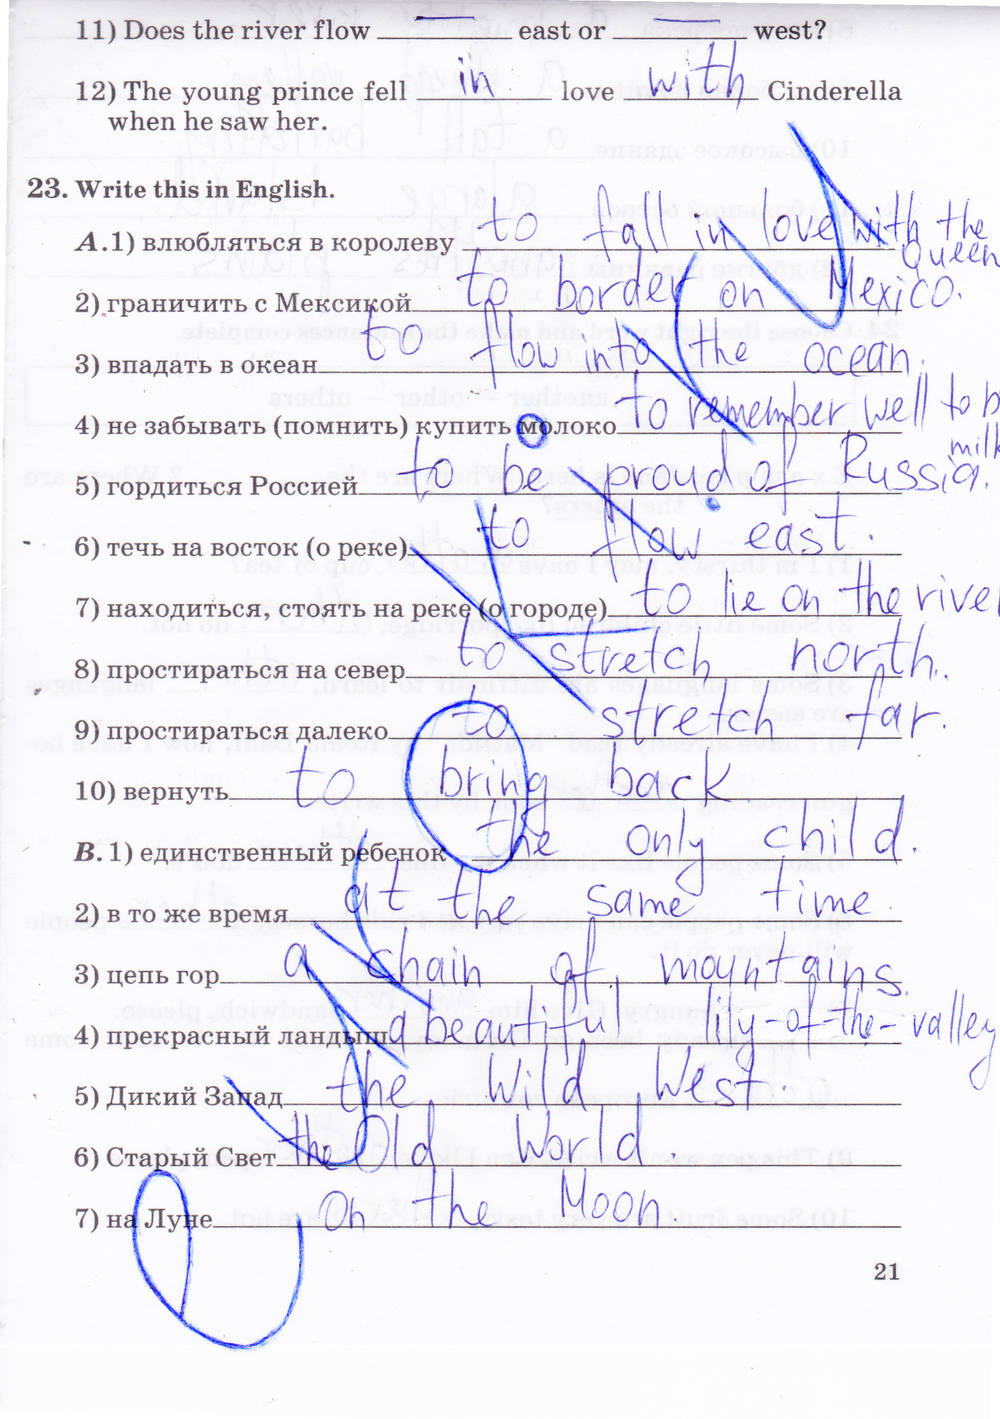 11) Does the river flow — east or — west?
12) The young prince fell in love with Cinderella
when he saw her.
23. Write this in English.
A. 1) влюбляться в королеву to fall in love with the
Queen
2) граничить с Мексикой to border on Mexico.
3) впадать в океан to flow into the ocean.
4) не забывать (помнить) купить молоко to remember well to b
milk
5) гордиться Россией to be proud of Russia.
6) течь на восток (о реке) to flow east.
7) находиться, стоять на реке (о городе) to lie on the river
8) простираться на север to stretch north.
9) простираться далеко to stretch far.
10) вернуть to bring back
B. 1) единственный ребенок the only child.
2) в то же время at the same time.
3) цепь гор a chain of mountains.
4) прекрасный ландыш a beautiful lily-of-the-valley
5) Дикий Запад the Wild West.
6) Старый Свет the Old World.
7) на Луне On the Moon.
21